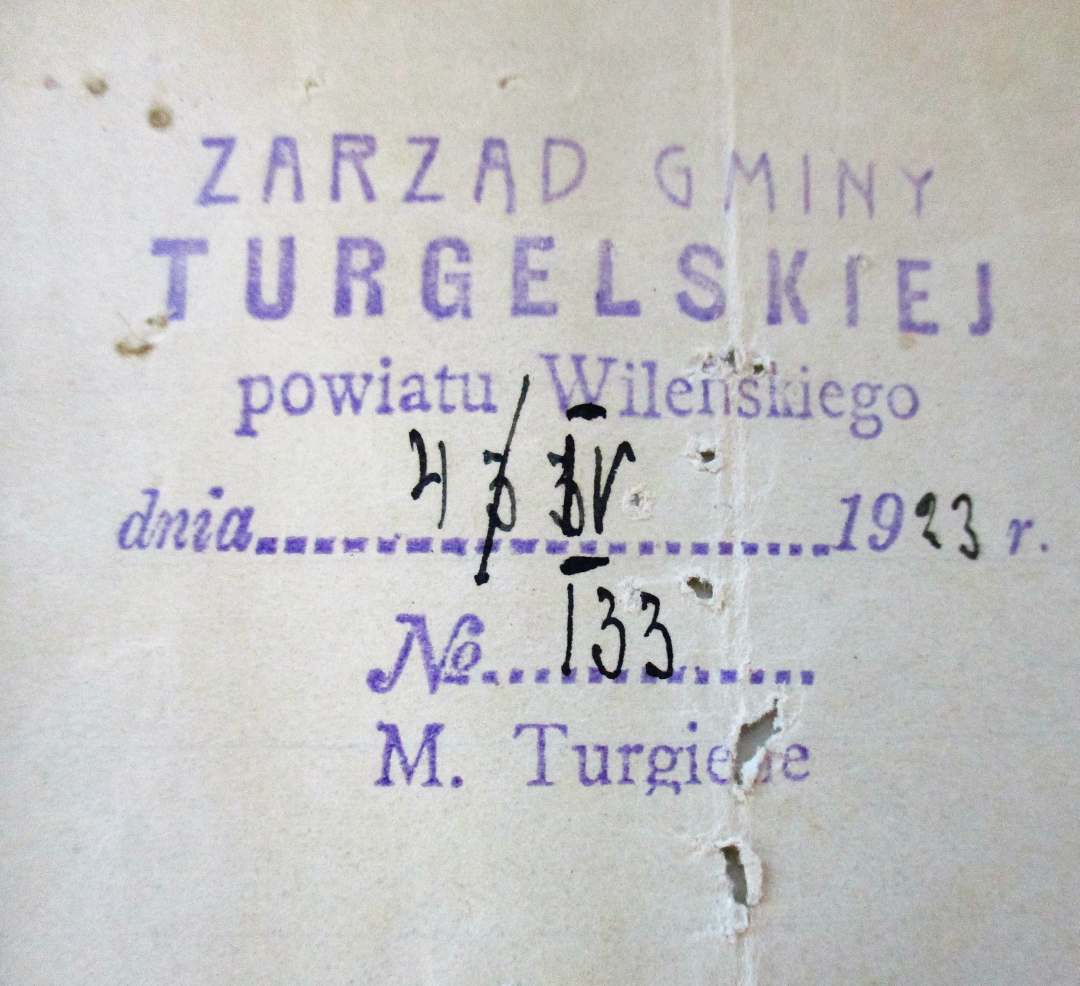 ZARZĄD GMINY
TURGELSKIEJ
powiatu Wileńskiego
dnia 4 IV 1923 r.
No 133
M. Turgiele